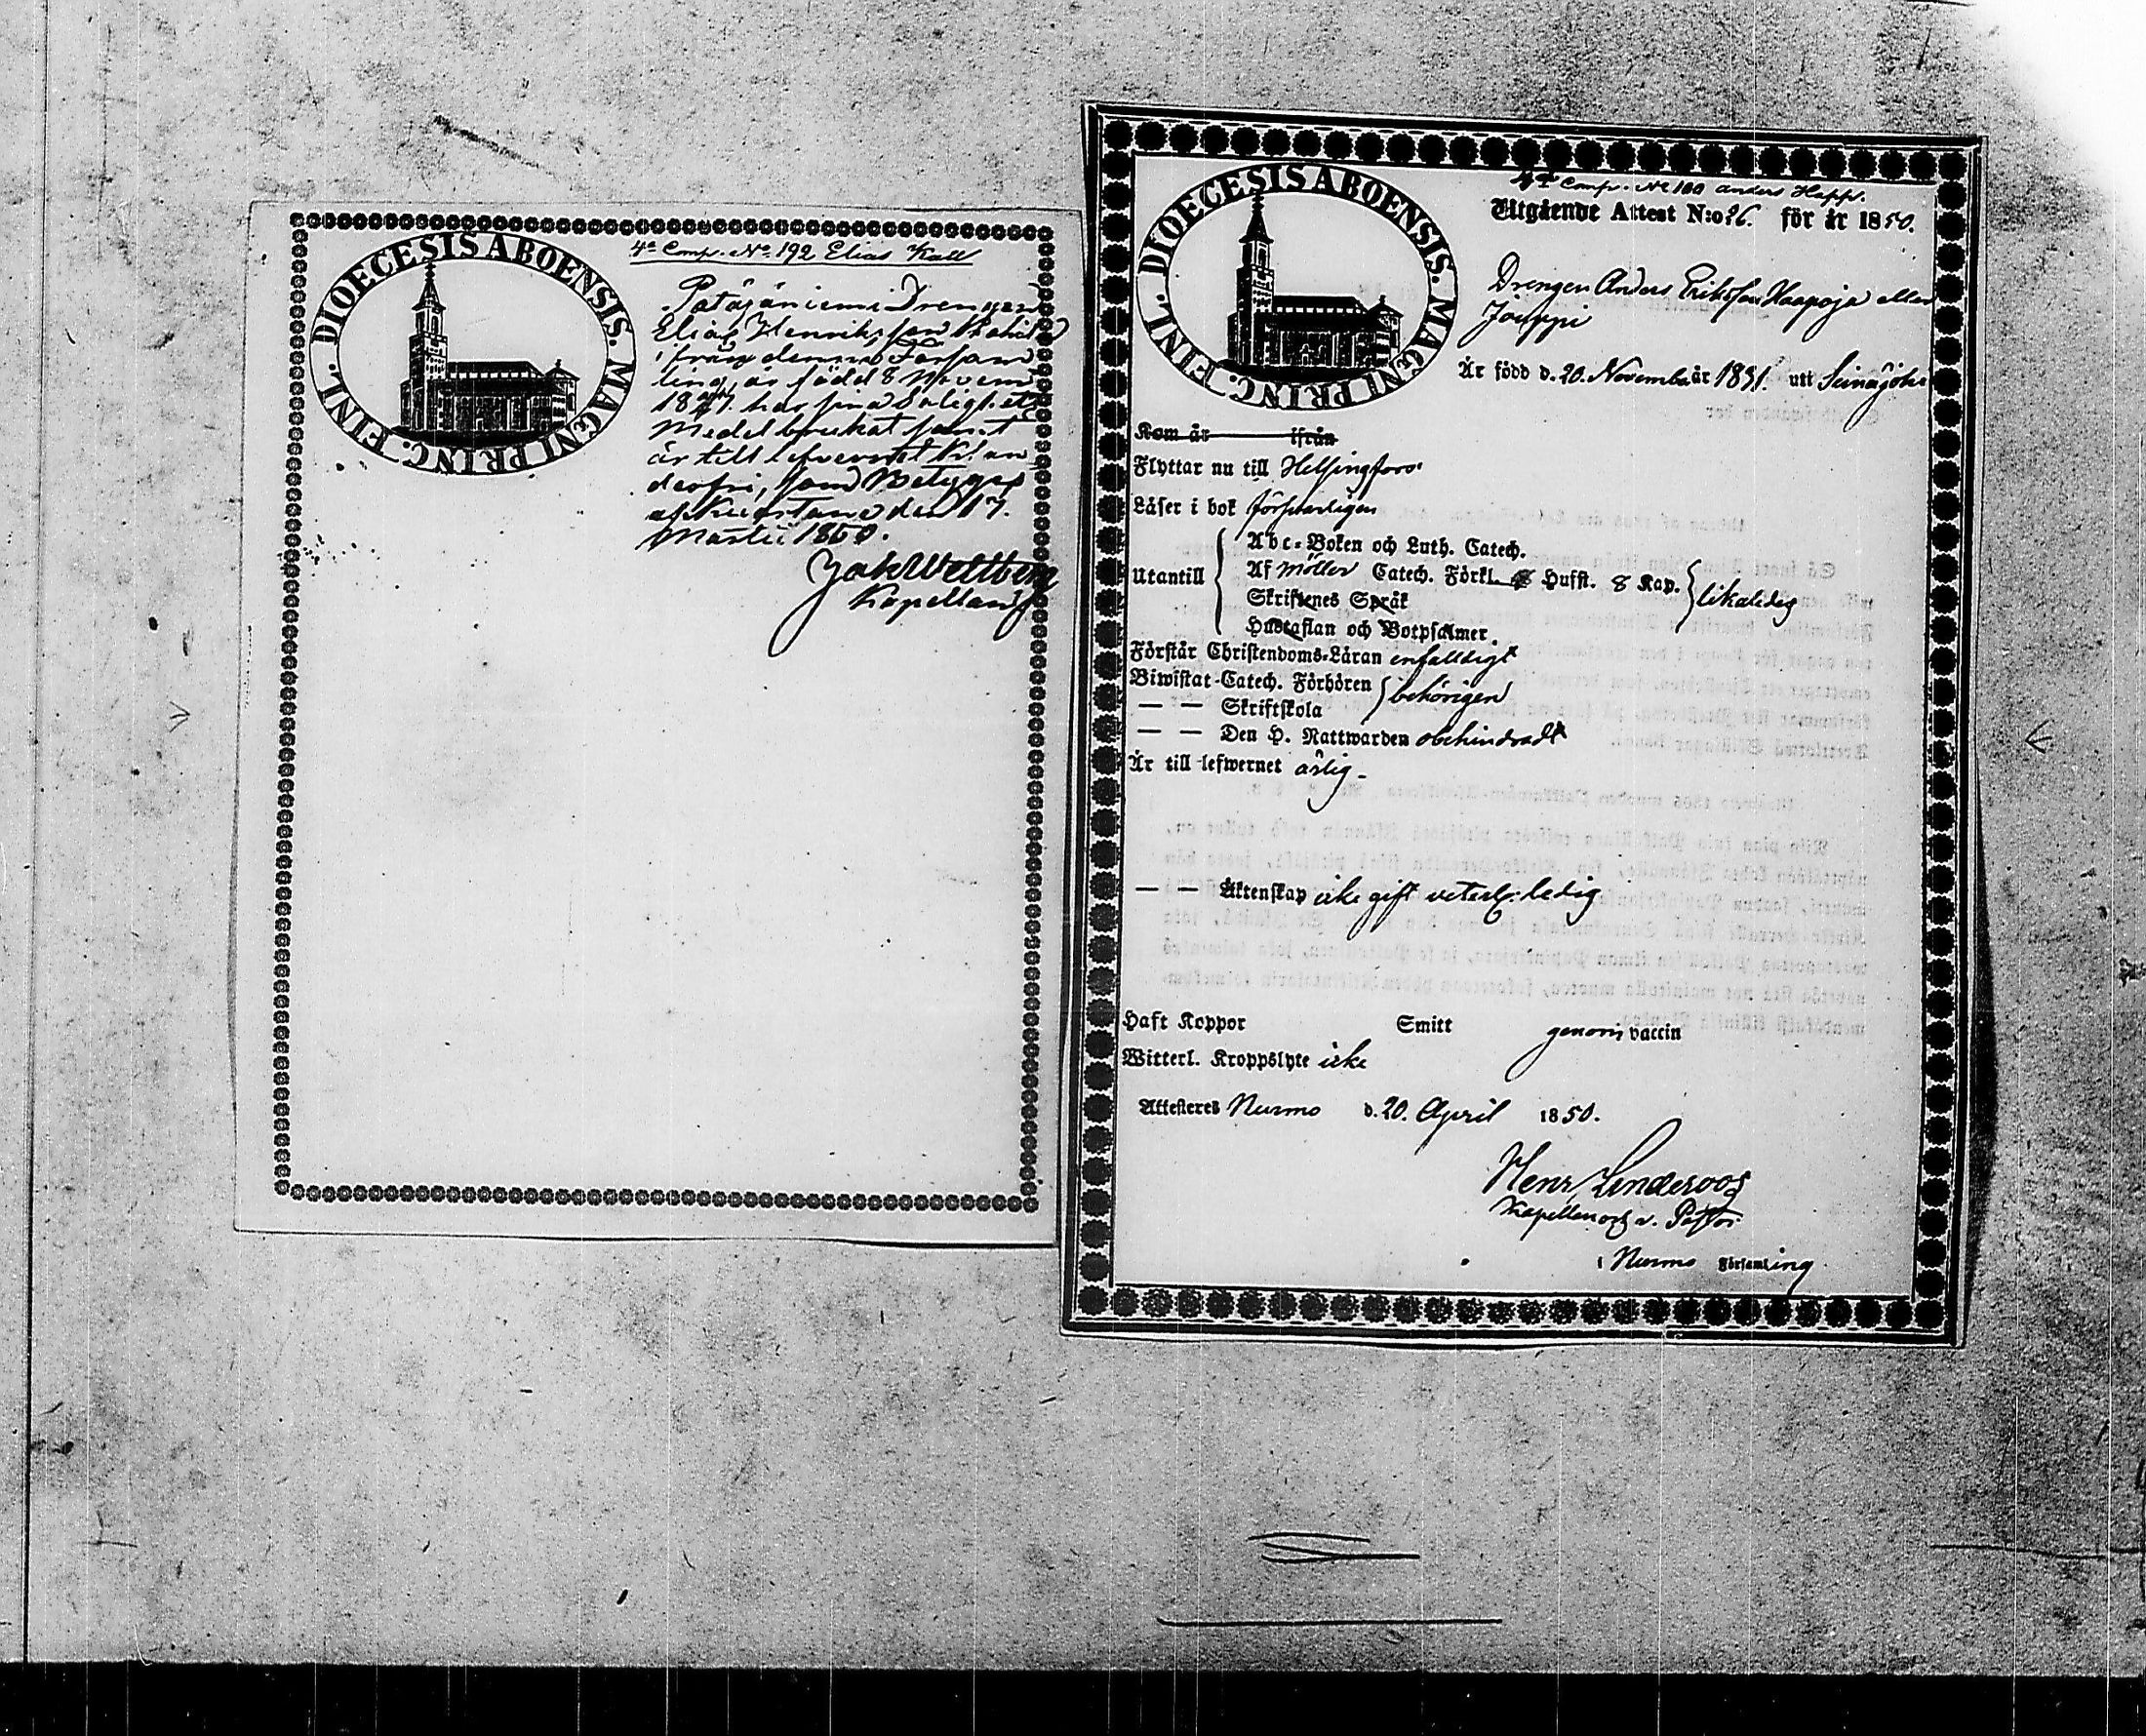 DIOECESIS ABOENSIS. MAGNI PRINC. FINL.
4e Comp. No. 192 Elias Kall
Patajäniemi Drengen
Elias Henriksson
ifrån denna Församling,
är född 8 Novem
18 har sina Salighets
Medel brukat samt
är till lefvernet klan
derfri, som betygas
af Kuortane den 17.
Martii 1850.
Jak Wellberg
Kapellan
DIOECESIS ABOENSIS. MAGNI PRINC. FINL.
4de Comp. No 180 Anders Happ.
Utgående Attest N:o 26. för år 1850.
Drengen Anders Eriksson Haapoja eller
Jouppi
Är född d. 20. November år 1831. uti Seinäjoki
Kom år ifrån
Flyttar nu till Helsingfors
Läser i bok försvarligen
Utantill
Abc-Boken och Luth. Catech.
Af Möller Catech. Förkl. Hufst. 8 Kap.
Skriftenes Språk
Hustaflan och Botpsalmer.
likaledes
Förstår Christendoms-Läran enfalldigt
Biwistat Catech. Förhören
— — Skriftskola
behörigen
— — Den H. Nattwarden obehindradt
Är till lefwernet ärlig.
— — Äktenskap icke gift veterl. ledig
Haft Koppor Smitt genom vaccin
Witterl. Kroppslyte icke
Attesteres Nurmo d. 20. April 1850.
Henr Linderoos
Kapellan och v. Pastor
i Nurmo Församling